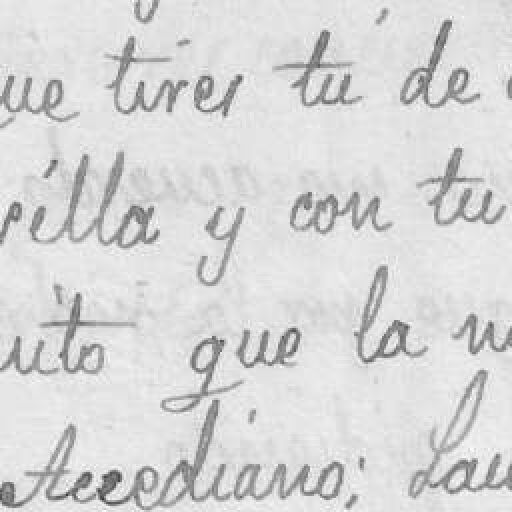 que tires tú de
rilla y con tu
uito que la
Arcediano; Lau